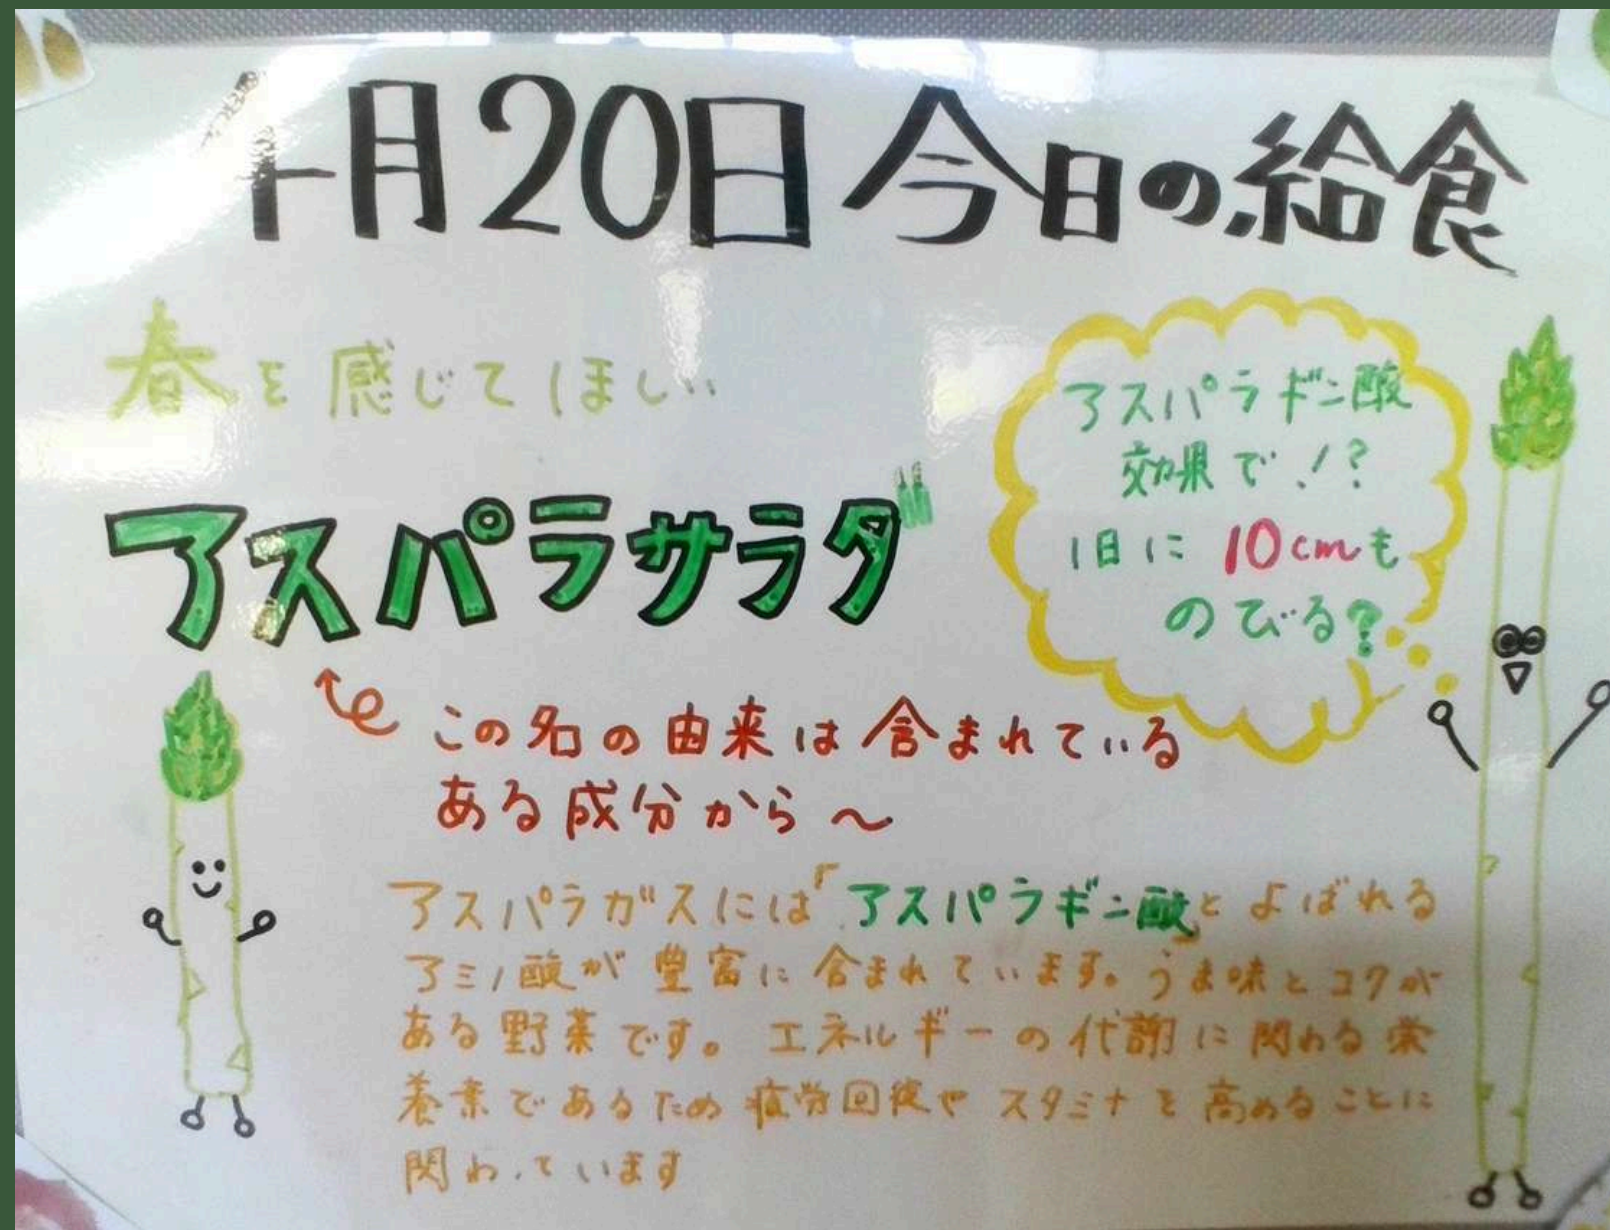 4月20日 今日の給食
春を感じてほしい
アスパラサラダ
アスパラギン酸
効果で!?
1日に10cmも
のびる?
この名の由来は含まれている
ある成分から～
アスパラガスには「アスパラギン酸」とよばれる
アミノ酸が豊富に含まれています。うま味とコクが
ある野菜です。エネルギーの代謝に関わる栄
養素であるため疲労回復やスタミナを高めることに
関わっています